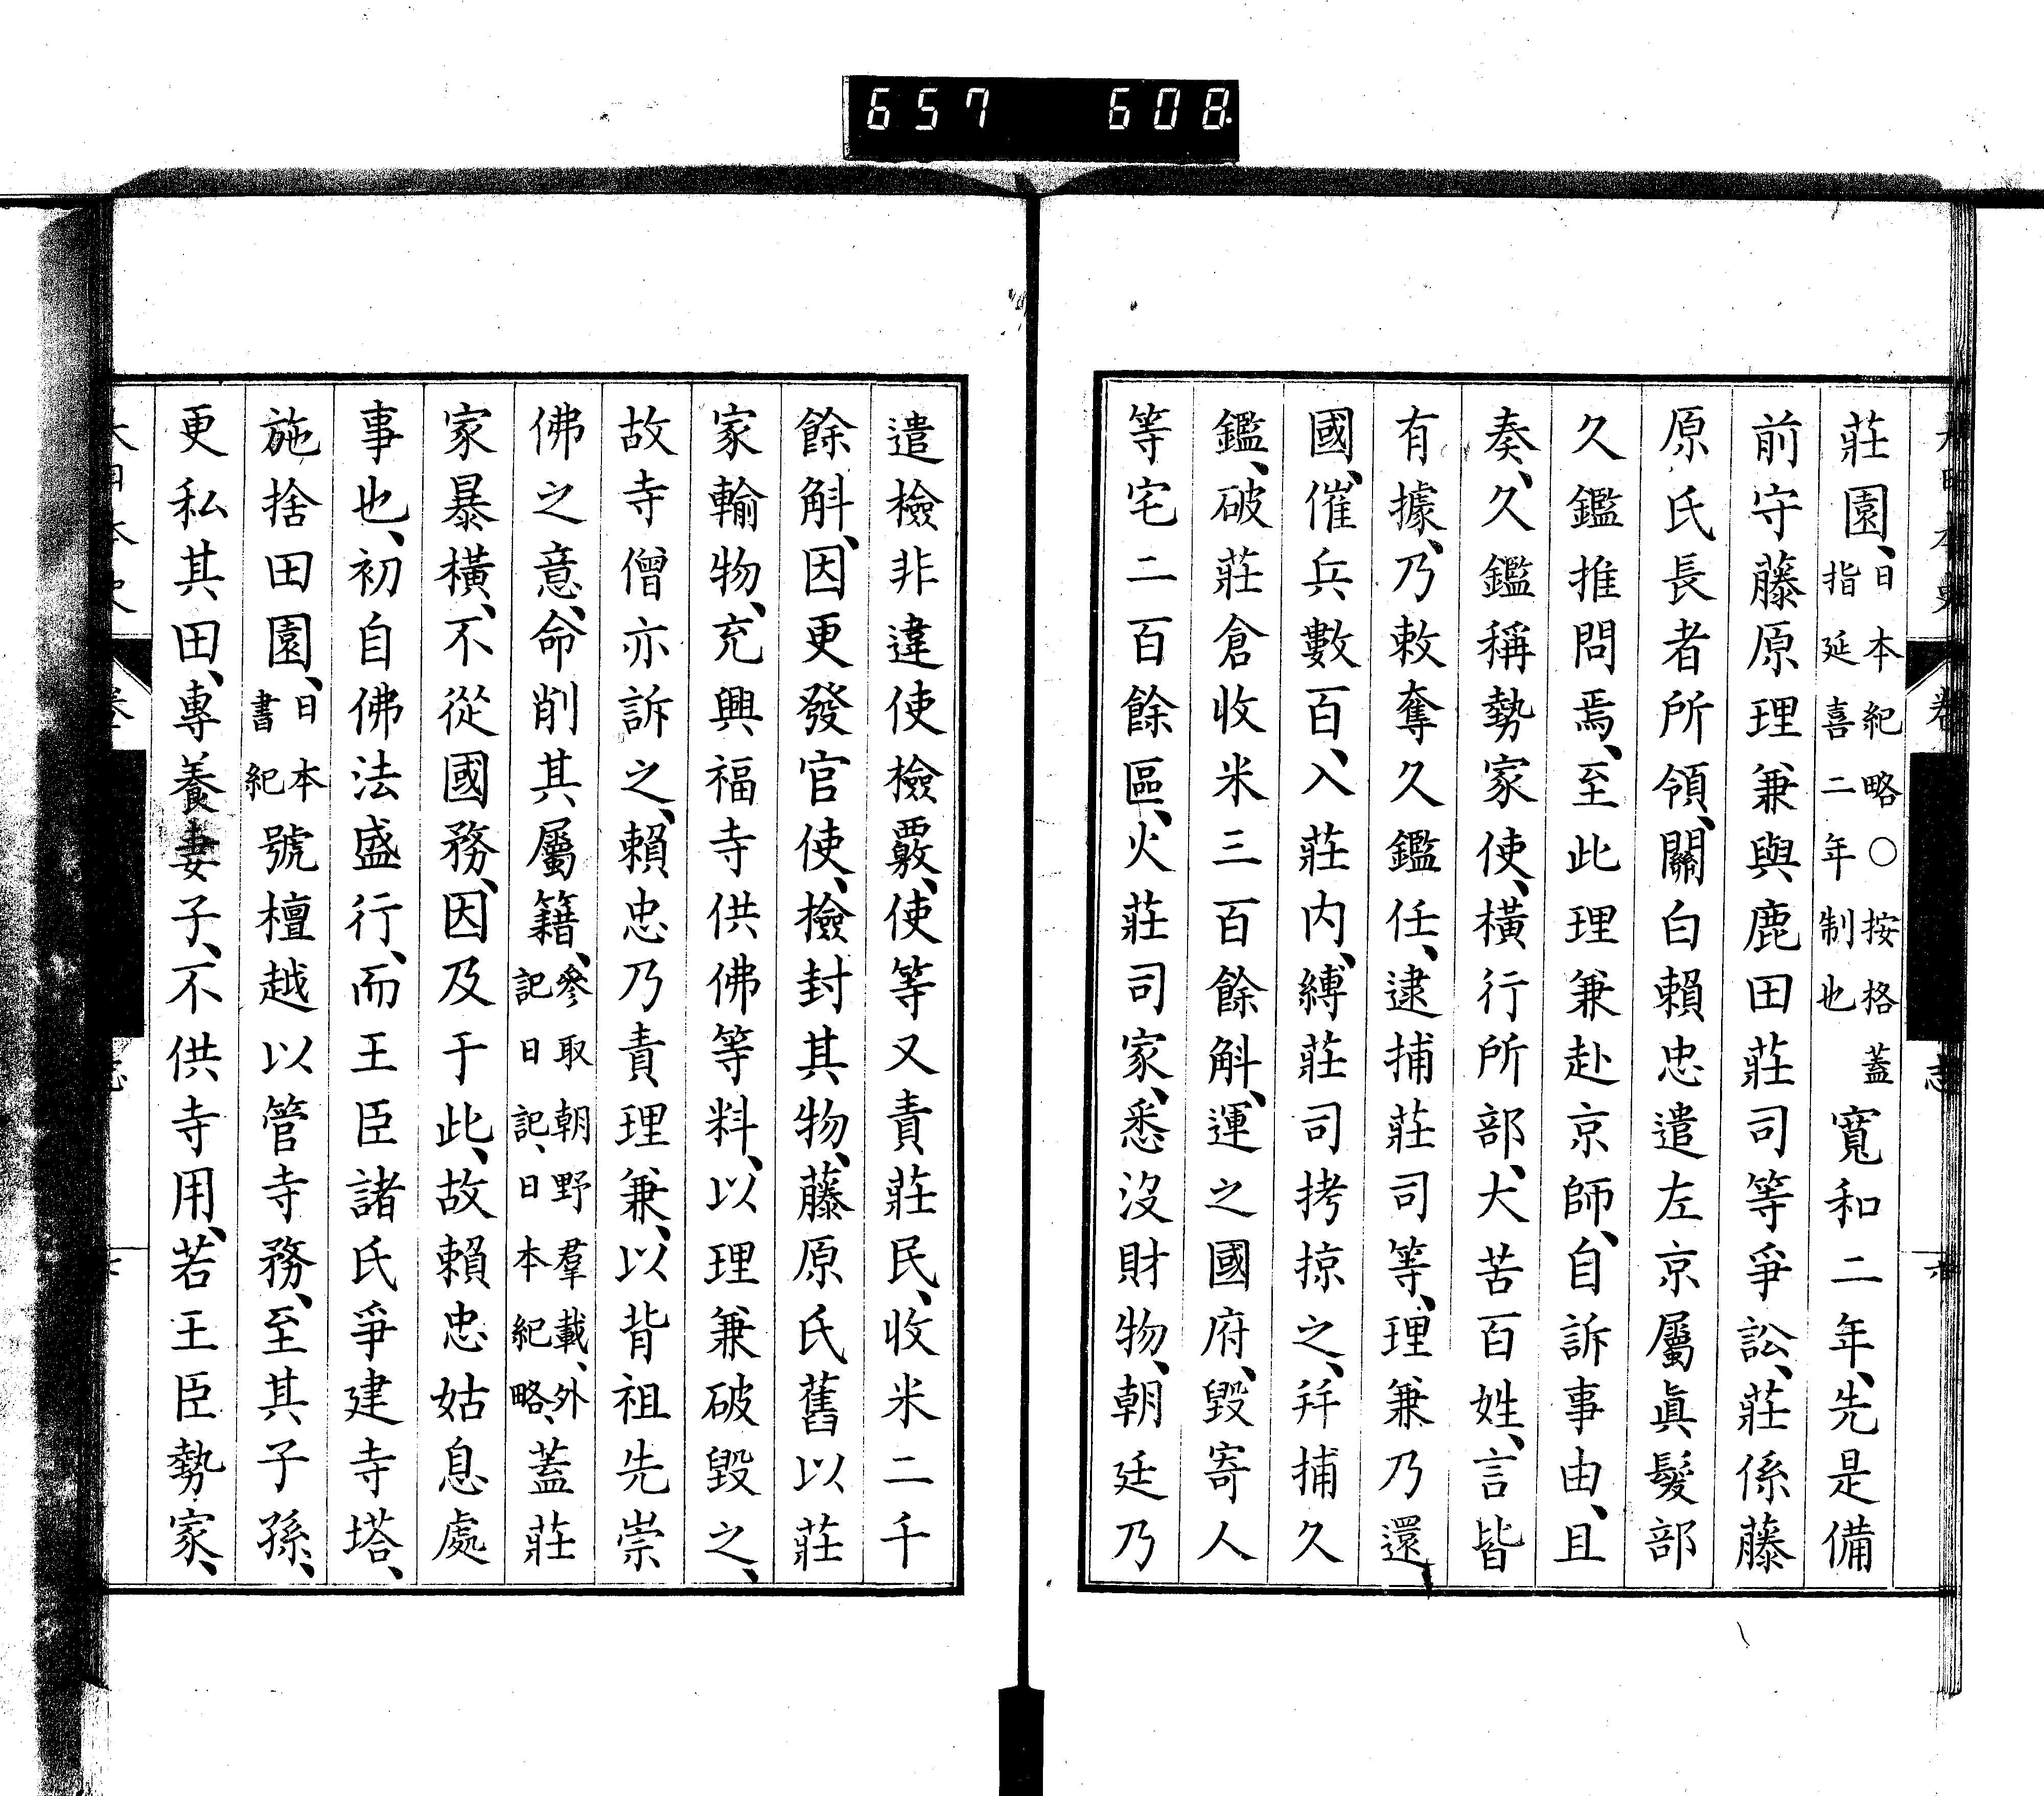 657 608
莊園、日本紀略○按格蓋指延喜二年制也 寬和二年、先是備
前守藤原理兼與鹿田莊司等爭訟、莊係藤
原氏長者所領、關白賴忠遣左京屬眞髮部
久鑑推問焉、至此理兼赴京師、自訴事由、且
奏、久鑑稱勢家使、橫行所部、大苦百姓、言皆
有據、乃敕奪久鑑任、逮捕莊司等、理兼乃還
國、催兵數百、入莊内、縛莊司拷掠之、幷捕久
鑑、破莊倉收米三百餘斛、運之國府、毀寄人
等宅二百餘區、火莊司家、悉沒財物、朝廷乃
遣檢非違使檢覈、使等又責莊民、收米二千
餘斛、因更發官使、檢封其物、藤原氏舊以莊
家輸物、充興福寺供佛等料、以理兼破毀之、
故寺僧亦訴之、賴忠乃責理兼、以背祖先崇
佛之意、命削其屬籍、參取朝野羣載、外記日記、日本紀略、蓋莊
家暴橫、不從國務、因及于此、故賴忠姑息處
事也、初自佛法盛行、而王臣諸氏爭建寺塔、
施捨田園、日本書紀號檀越以管寺務、至其子孫、
更私其田、專養妻子、不供寺用、若王臣勢家、